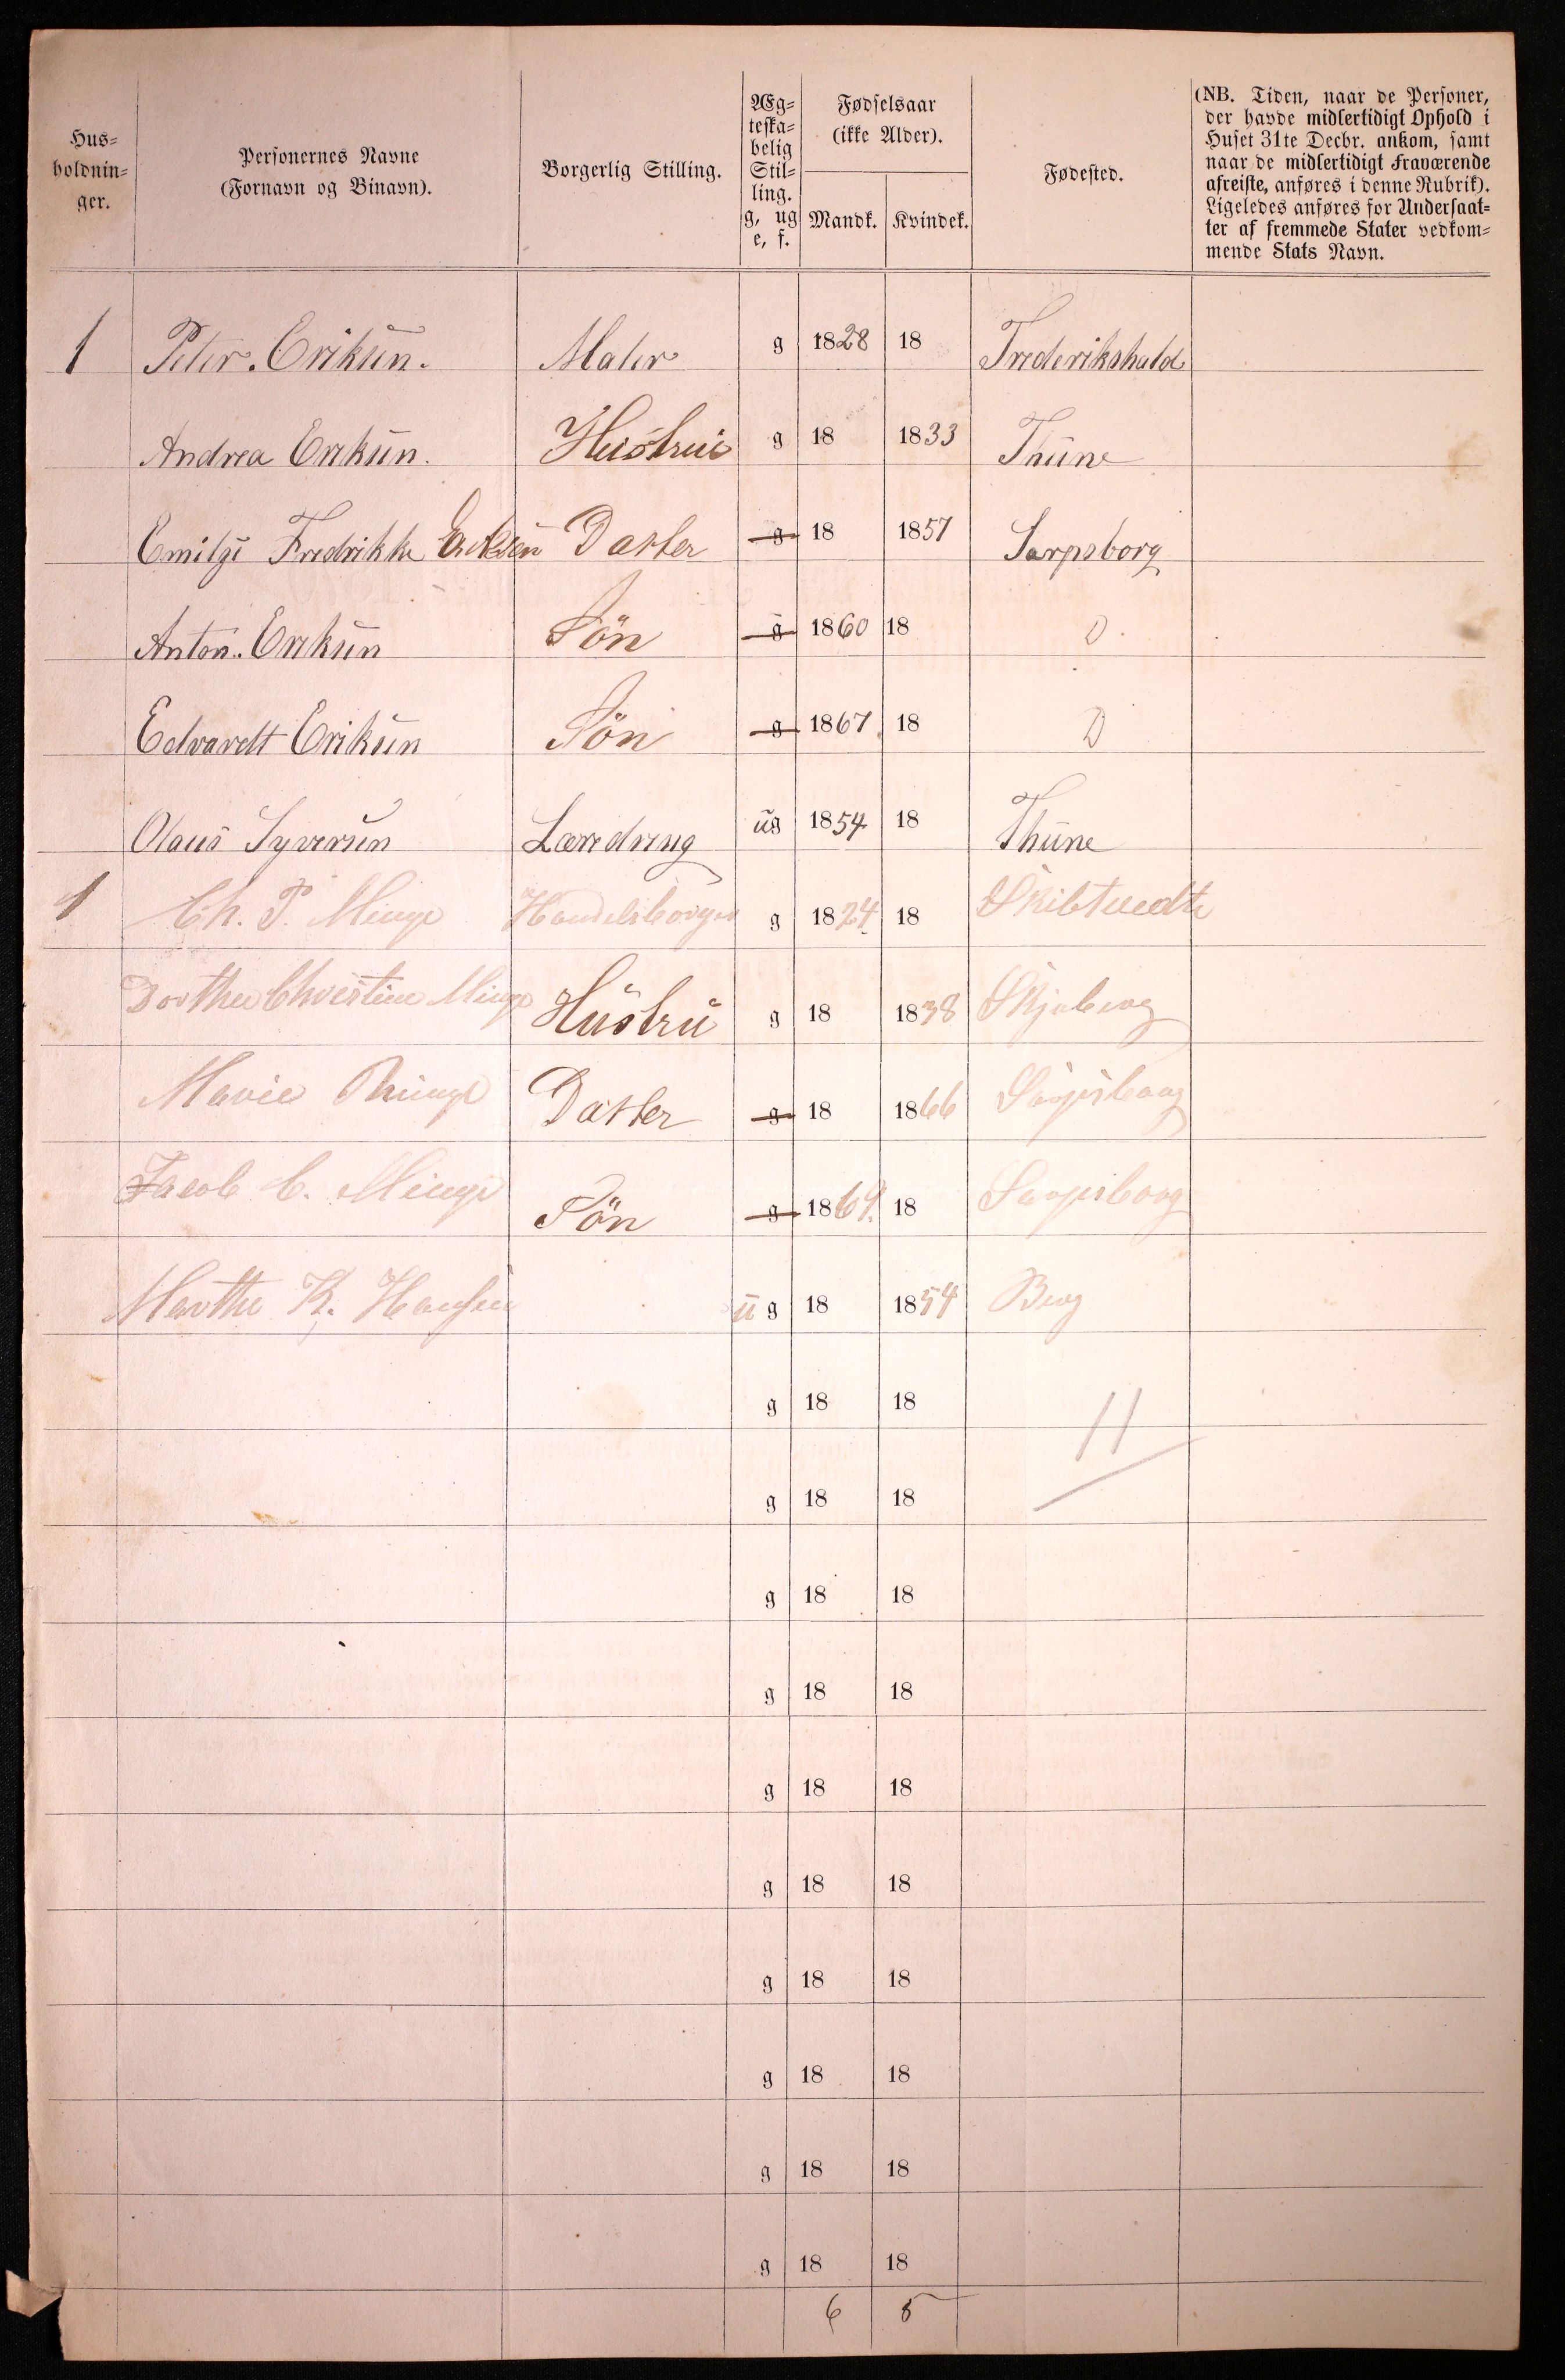 Hus-
holdnin-
ger.
Personernes Navne
(Fornavn og Binavn).
Borgerlig Stilling.
Æg-
teska-
belig
Stil-
ling.
g, ug
e, f.
Fødselsaar
(ikke Alder).
Mandk. Kvindek.
Fødested.
(NB. Tiden, naar de Personer,
der havde midlertidigt Ophold i
Huset 31te Decbr. ankom, samt
naar de midlertidigt Fraværende
afreiste, anføres i denne Rubrik).
Ligeledes anføres for Undersaat-
ter af fremmede Stater vedkom-
mende Stats Navn.
1 Peter. Eriksen. Maler g 1828 18 Frederikshald
Andrea Eriksen. Hustrui g 18 1833 Thune
Emilie Fredrikke Eriksen Datter g 18 1857 Sarpsborg
Anton. Eriksen Sön g 1860 18 D
Edvardt Eriksen Sön g 1867 18 D
Olaus Syversen Læredreng ug 1854 18 Thune
1 Ch. P. Minge Handelsborger g 1824 18 Skibtvedt
Dorthea Christine Minge Hustru g 18 1838 Skjeberg
Marie Minge Datter g 18 1866 Sarpsborg
Jacob C. Minge Sön g 1869 18 Sarpsborg
Marthe K. Hansen u g 18 1854 Berg
g 18 18
11
g 18 18
g 18 18
g 18 18
g 18 18
g 18 18
g 18 18
g 18 18
g 18 18
g 18 18
6 5